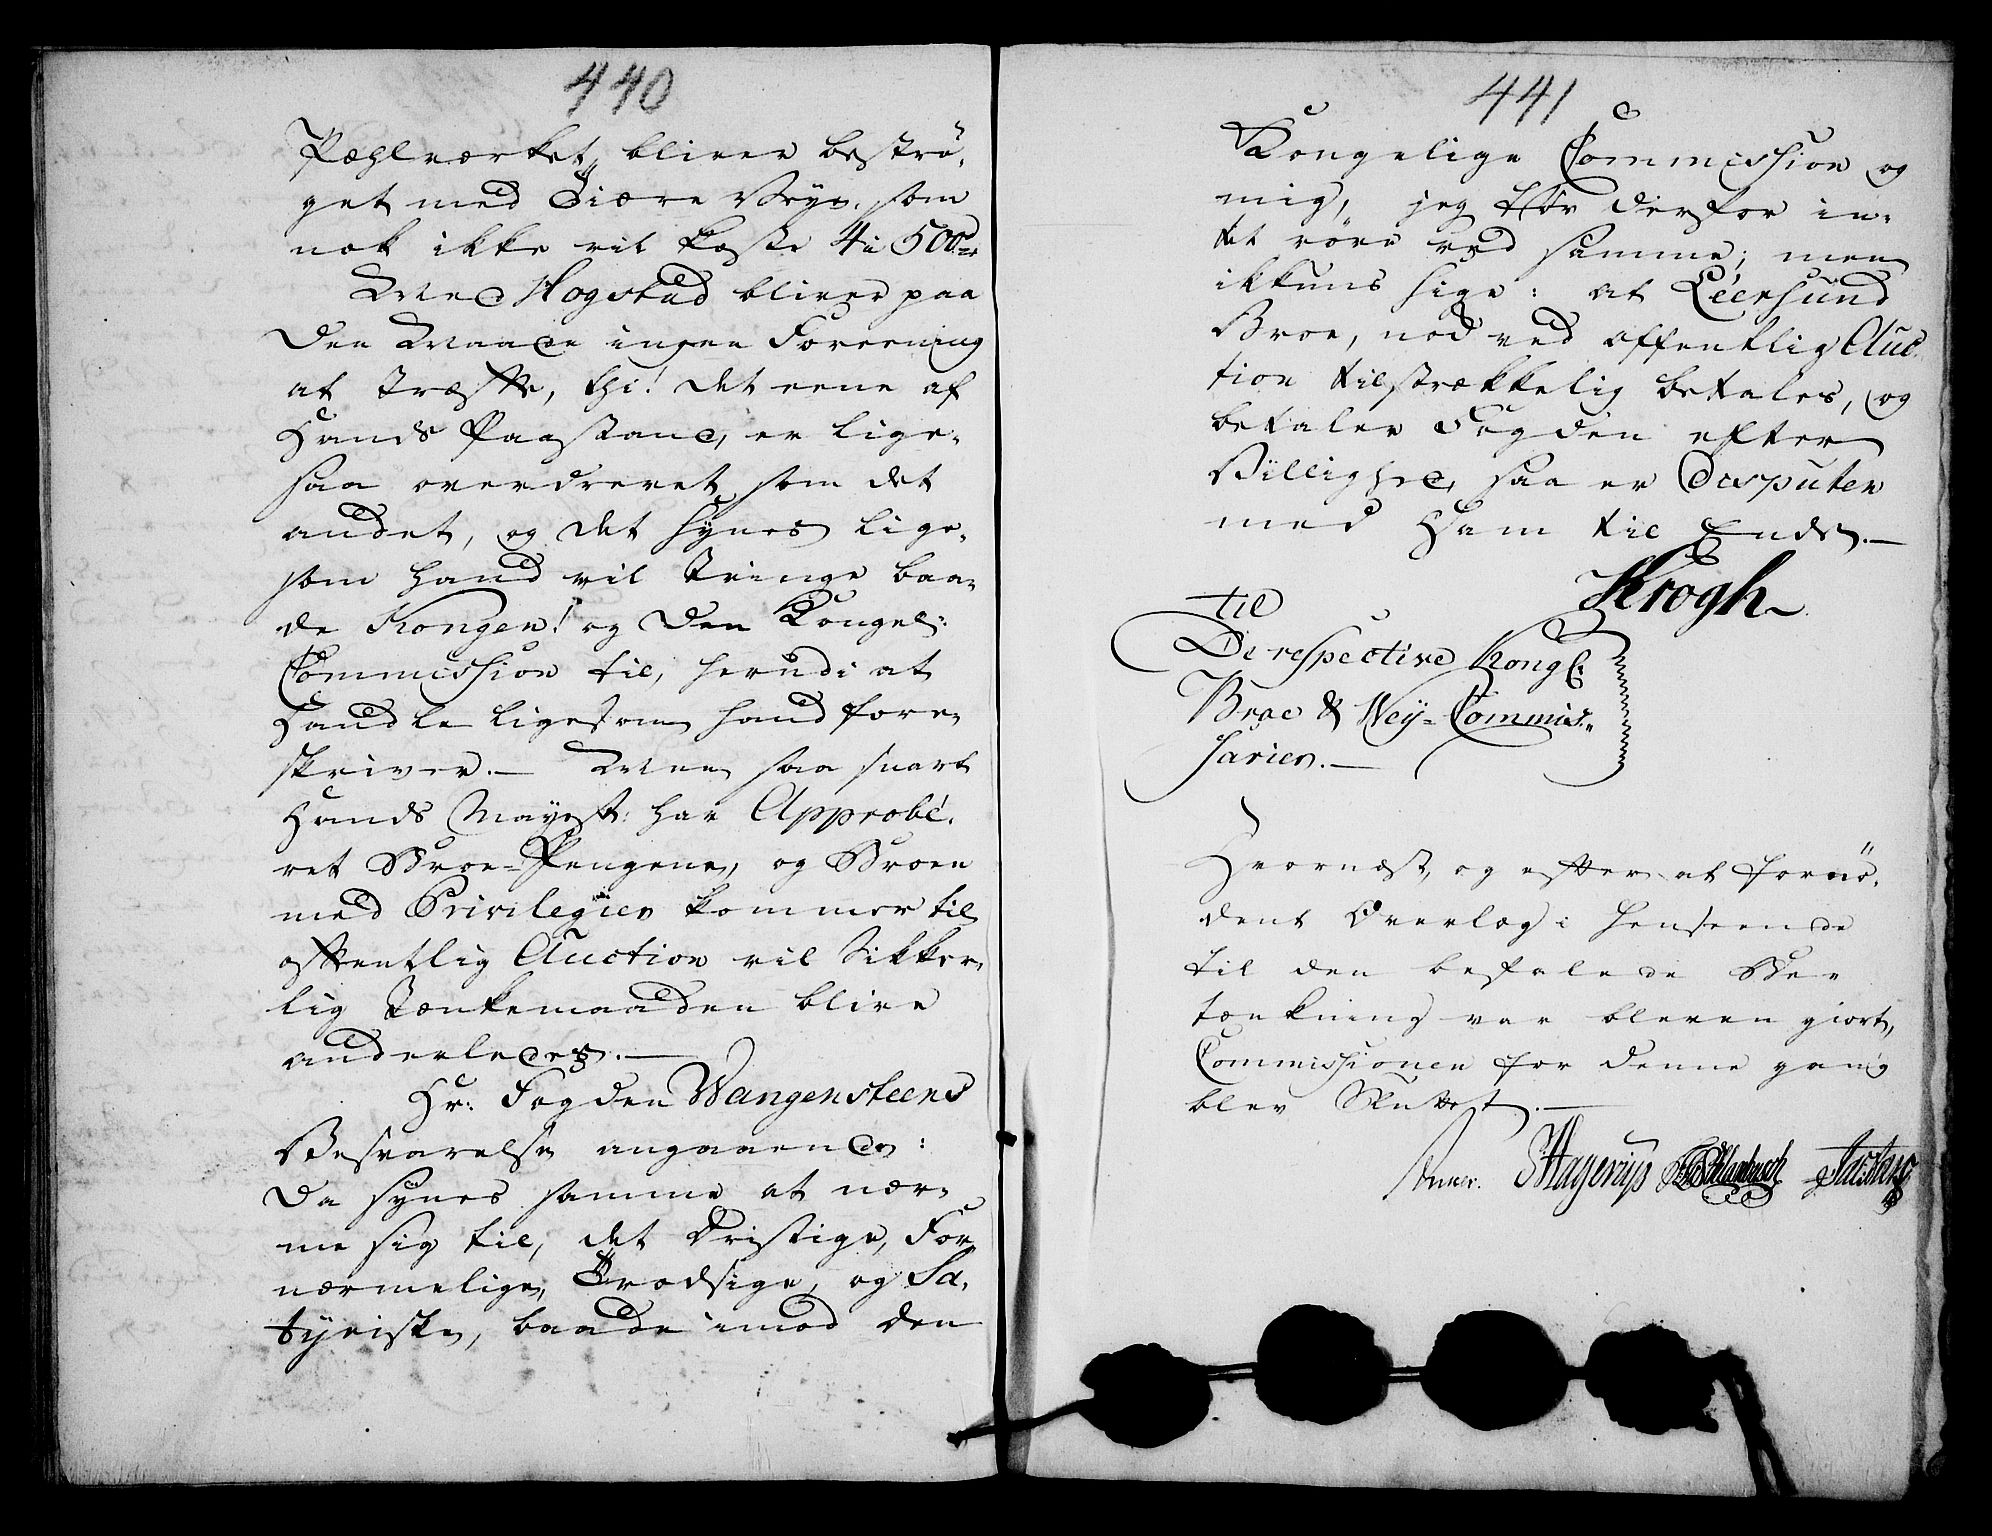 440
Pæhlværket, bliver beströ-
get med Tiære Bryn, som
nok ikke vil koste 4 à 500
Med Hogstad bliver paa
den Maade ingen Foreening
at træffe, thi! det eene af
Hands Paastand, er lige-
saa overdrevet som det
andet, og det synes lige-
som hand vil tvinge baa-
de Kongen! og den Kongel:
Commission til, herudi at
Handle ligesom hand fore-
skriver. — Men saa snart
Hands Mayst: har Approbe-
ret Broe-Pengene, og Broen
med Privilegier kommer til
offentlig Auction vil sikker-
lig Tænkemaaden blive
anderledes. —
Hr: Fogden Wangensteens
Besvarelse angaaende:
da synes samme at nær-
me sig til, det Dristige, For-
nærmelige, Trodsige, og Sa-
tyriske, baade imod den
441
Kongelige Commission og
mig, jeg tör derfor in-
tet röre ved samme; men
ikkuns sige: at Léersund
Broe, nod ved offentlig Auc-
tion tilstrækkelig betales, og
betaler Fogden efter
Billighed, saa er Disputen
med Ham til Ende. —
Krogh
til
De respective Kongl:
Broe & Wey-Commis-
sarier. —
Hvornæst, og efter at fornö-
dent Overlæg i Henseende
til den befalede Bee
tænkning var bleven giort,
Commissionen for denne gang
blev Sluttet. —
Anker. Hagerup